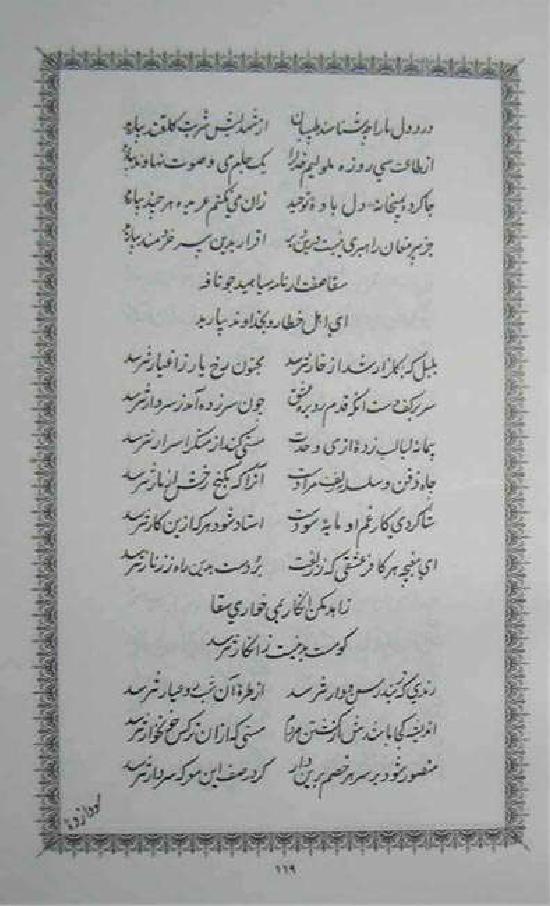 درد دل ما را چه شناسند طبیبان از شهد لبش شربت گلقند بیارید
از طاعت سی روزه ملولیم خدا را یک و صوت نهاوند بیارید
جا کرد به میخانه دل بادهٔ توحید زان می نکنم عربده هر چند بیارید
جز پیر مغان راهبری نیست درین ره اقرار بدین پیر خردمند بیارید
سقا صفت ار نامه سیاهید چو نافه
ای اهل خطا رو به خداوند بیارید
بلبل که به گلزار شد از خار نترسد مجنون رخ یار ز اغیار نترسد
سر بر کف دست ار قدم بر ره عشق چون سر زده آمد ز سر دار نترسد
پیمانه لبالب زده از می وحدت مستی کند از منکر اسرار نترسد
چاه ذقن و سلسله زلف مرادست آنرا که به گنج رخش از مار نترسد
شاگردی کار غم او مایه سودست استاد شود هر که ازین کار نترسد
ای مغبچه هر کافر عشقی که ز زلفت بر دست درین راه ز زنار نترسد
زاهد مکن انکار می خواری سقا
کو مست و ز انکار نترسد
رندی که نترسد ز عسس نترسد از طره آن شب رو عیار نترسد
اندیشه کجا باشدش از کشتن مردم مستی که از آن نرگس خونخوار نترسد
منصور شود بر سر هر خصم برین دار کز صف این معرکه سردار نترسد
۱۱۹